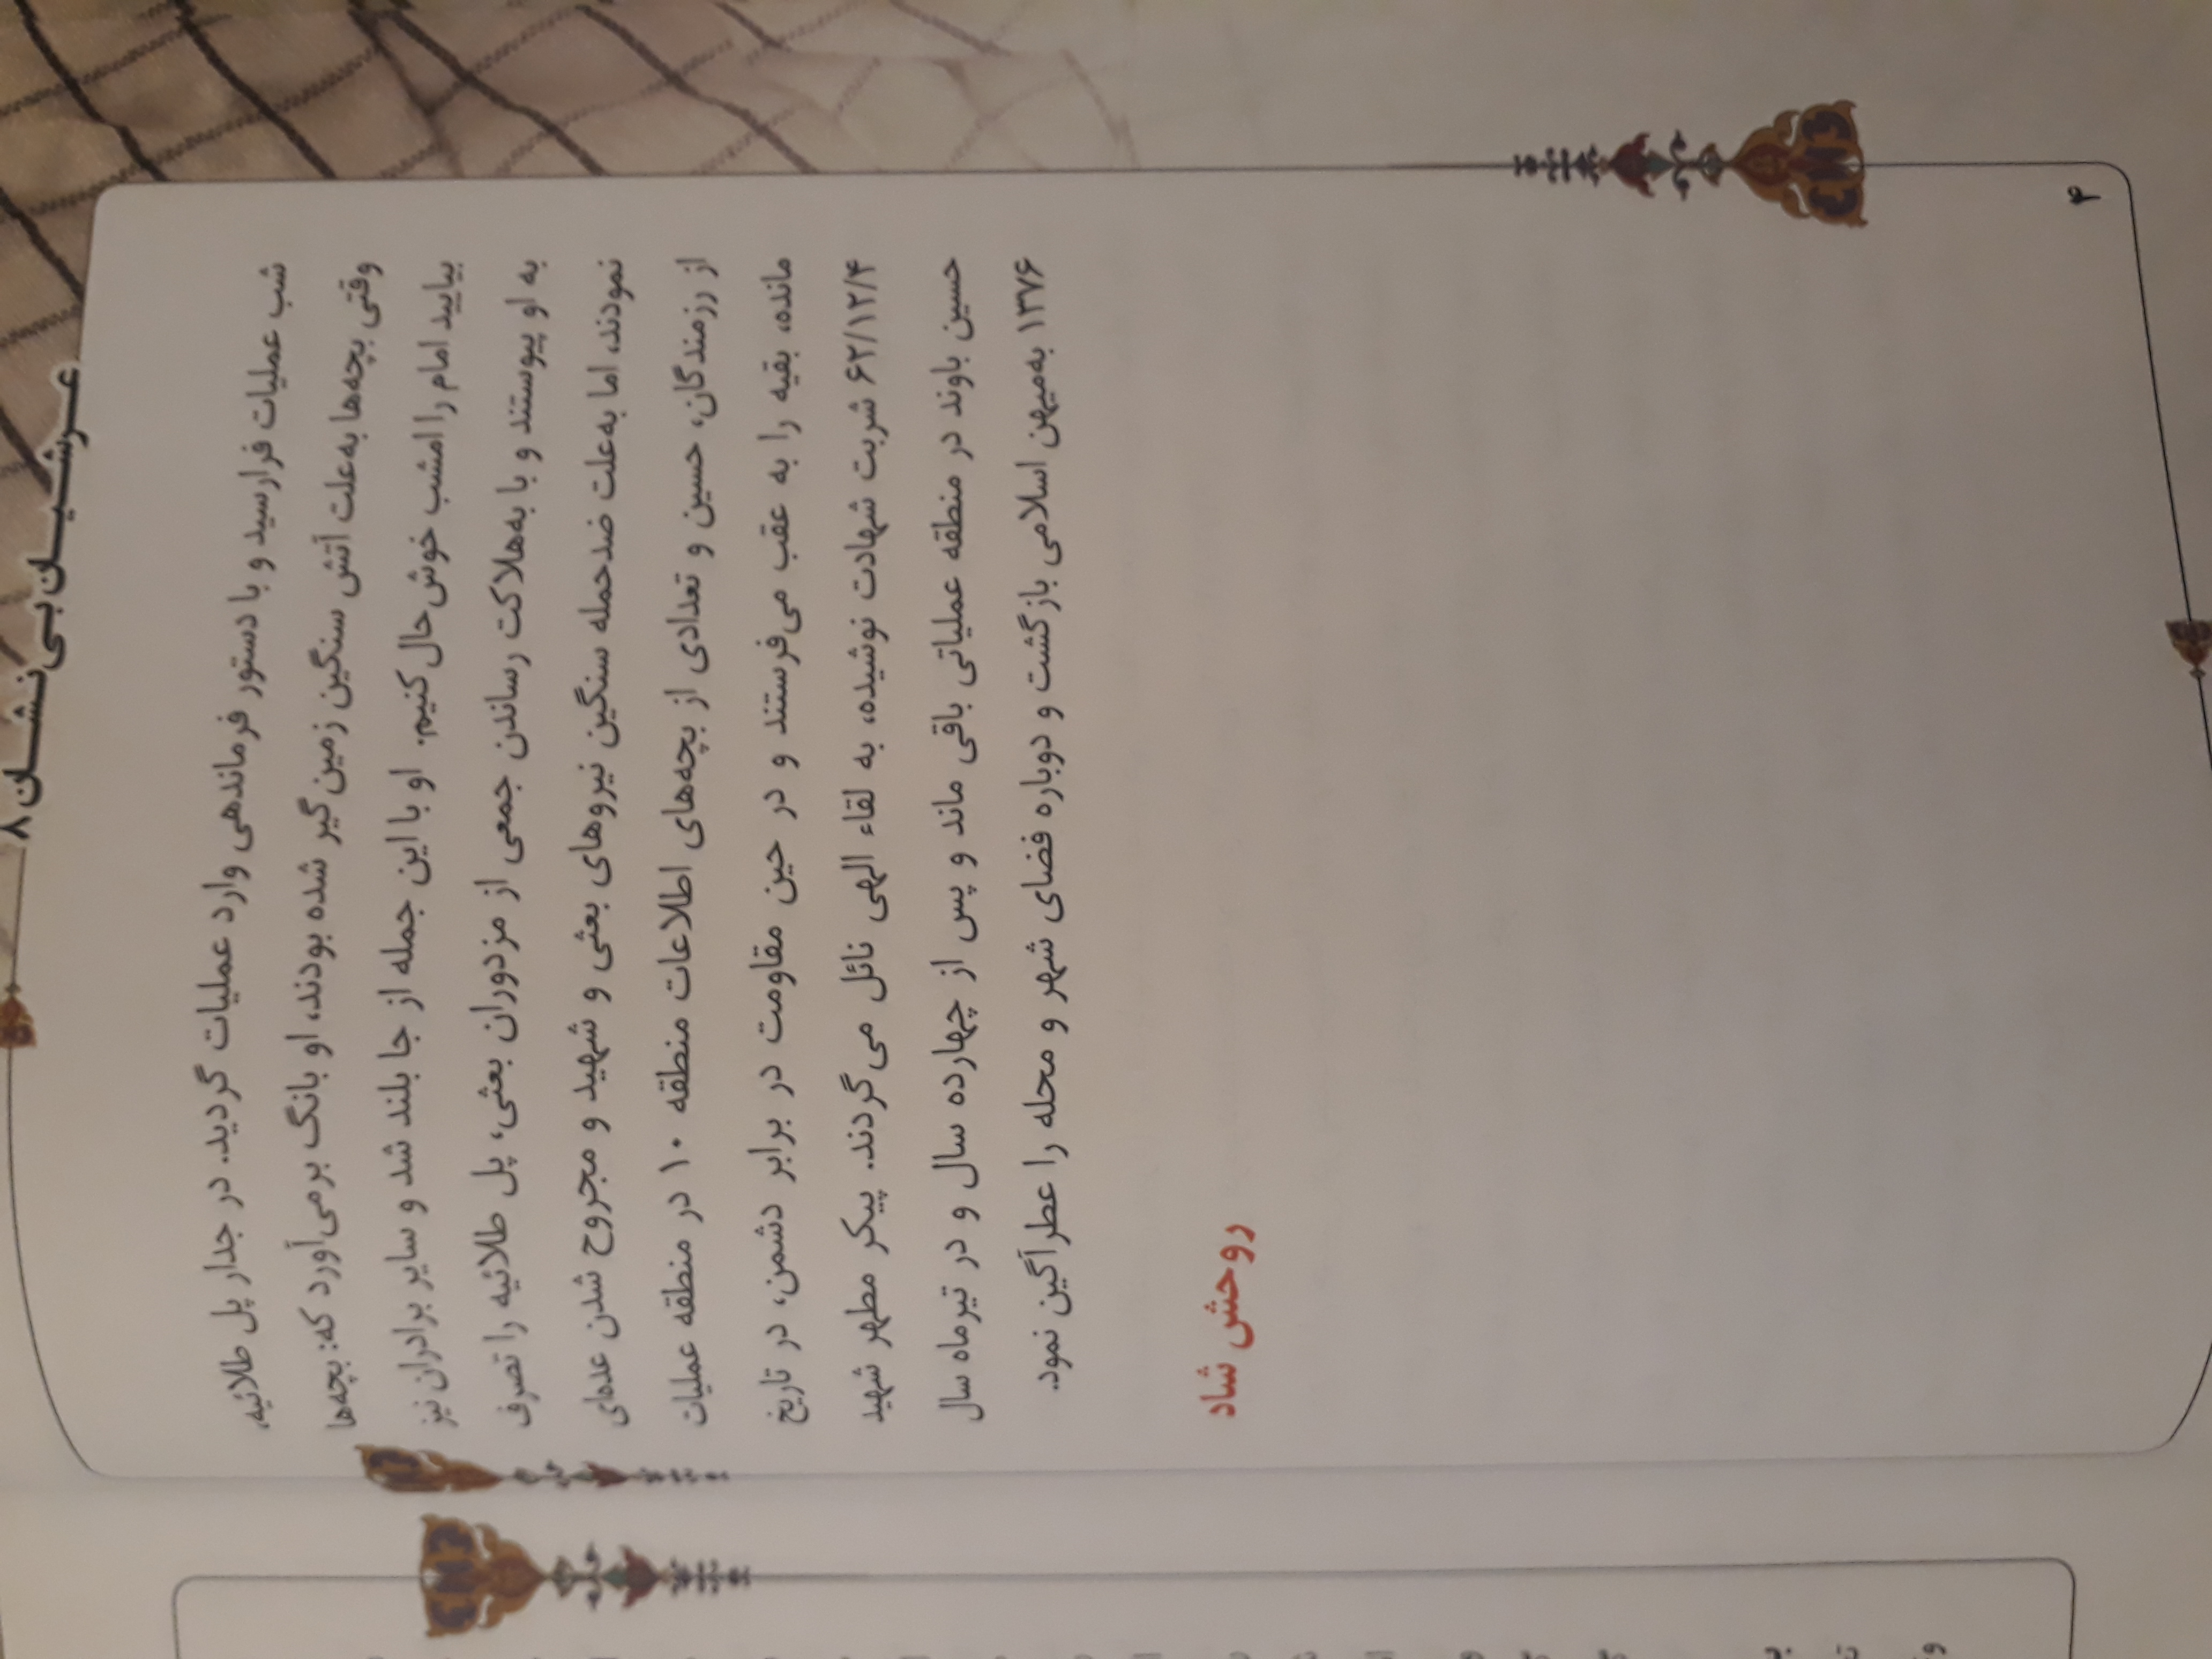 عرشیان بی‌نشان ۸
شب عملیات فرارسید و با دستور فرماندهی وارد عملیات گردید. در جدار پل طلائیه،
وقتی بچه‌ها به‌علت آتش سنگین زمین‌گیر شده بودند، او بانگ برمی‌آورد که: بچه‌ها
بیایید امام را امشب خوش‌حال کنیم. او با این جمله از جا بلند شد و سایر برادران نیز
به او پیوستند و با به‌هلاکت رساندن جمعی از مزدوران بعثی، پل طلائیه را تصرف
نمودند، اما به‌علت ضدحمله سنگین نیروهای بعثی و شهید و مجروح شدن عده‌ای
از رزمندگان، حسین و تعدادی از بچه‌های اطلاعات منطقه ۱۰ در منطقه عملیات
مانده، بقیه را به عقب می‌فرستند و در حین مقاومت در برابر دشمن، در تاریخ
۶۲/۱۲/۴ شربت شهادت نوشیده، به لقاء الهی نائل می‌گردند. پیکر مطهر شهید
حسین باوند در منطقه عملیاتی باقی ماند و پس از چهارده سال و در تیرماه سال
۱۳۷۶ به‌میهن اسلامی بازگشت و دوباره فضای شهر و محله را عطرآگین نمود.
روحش شاد
۴